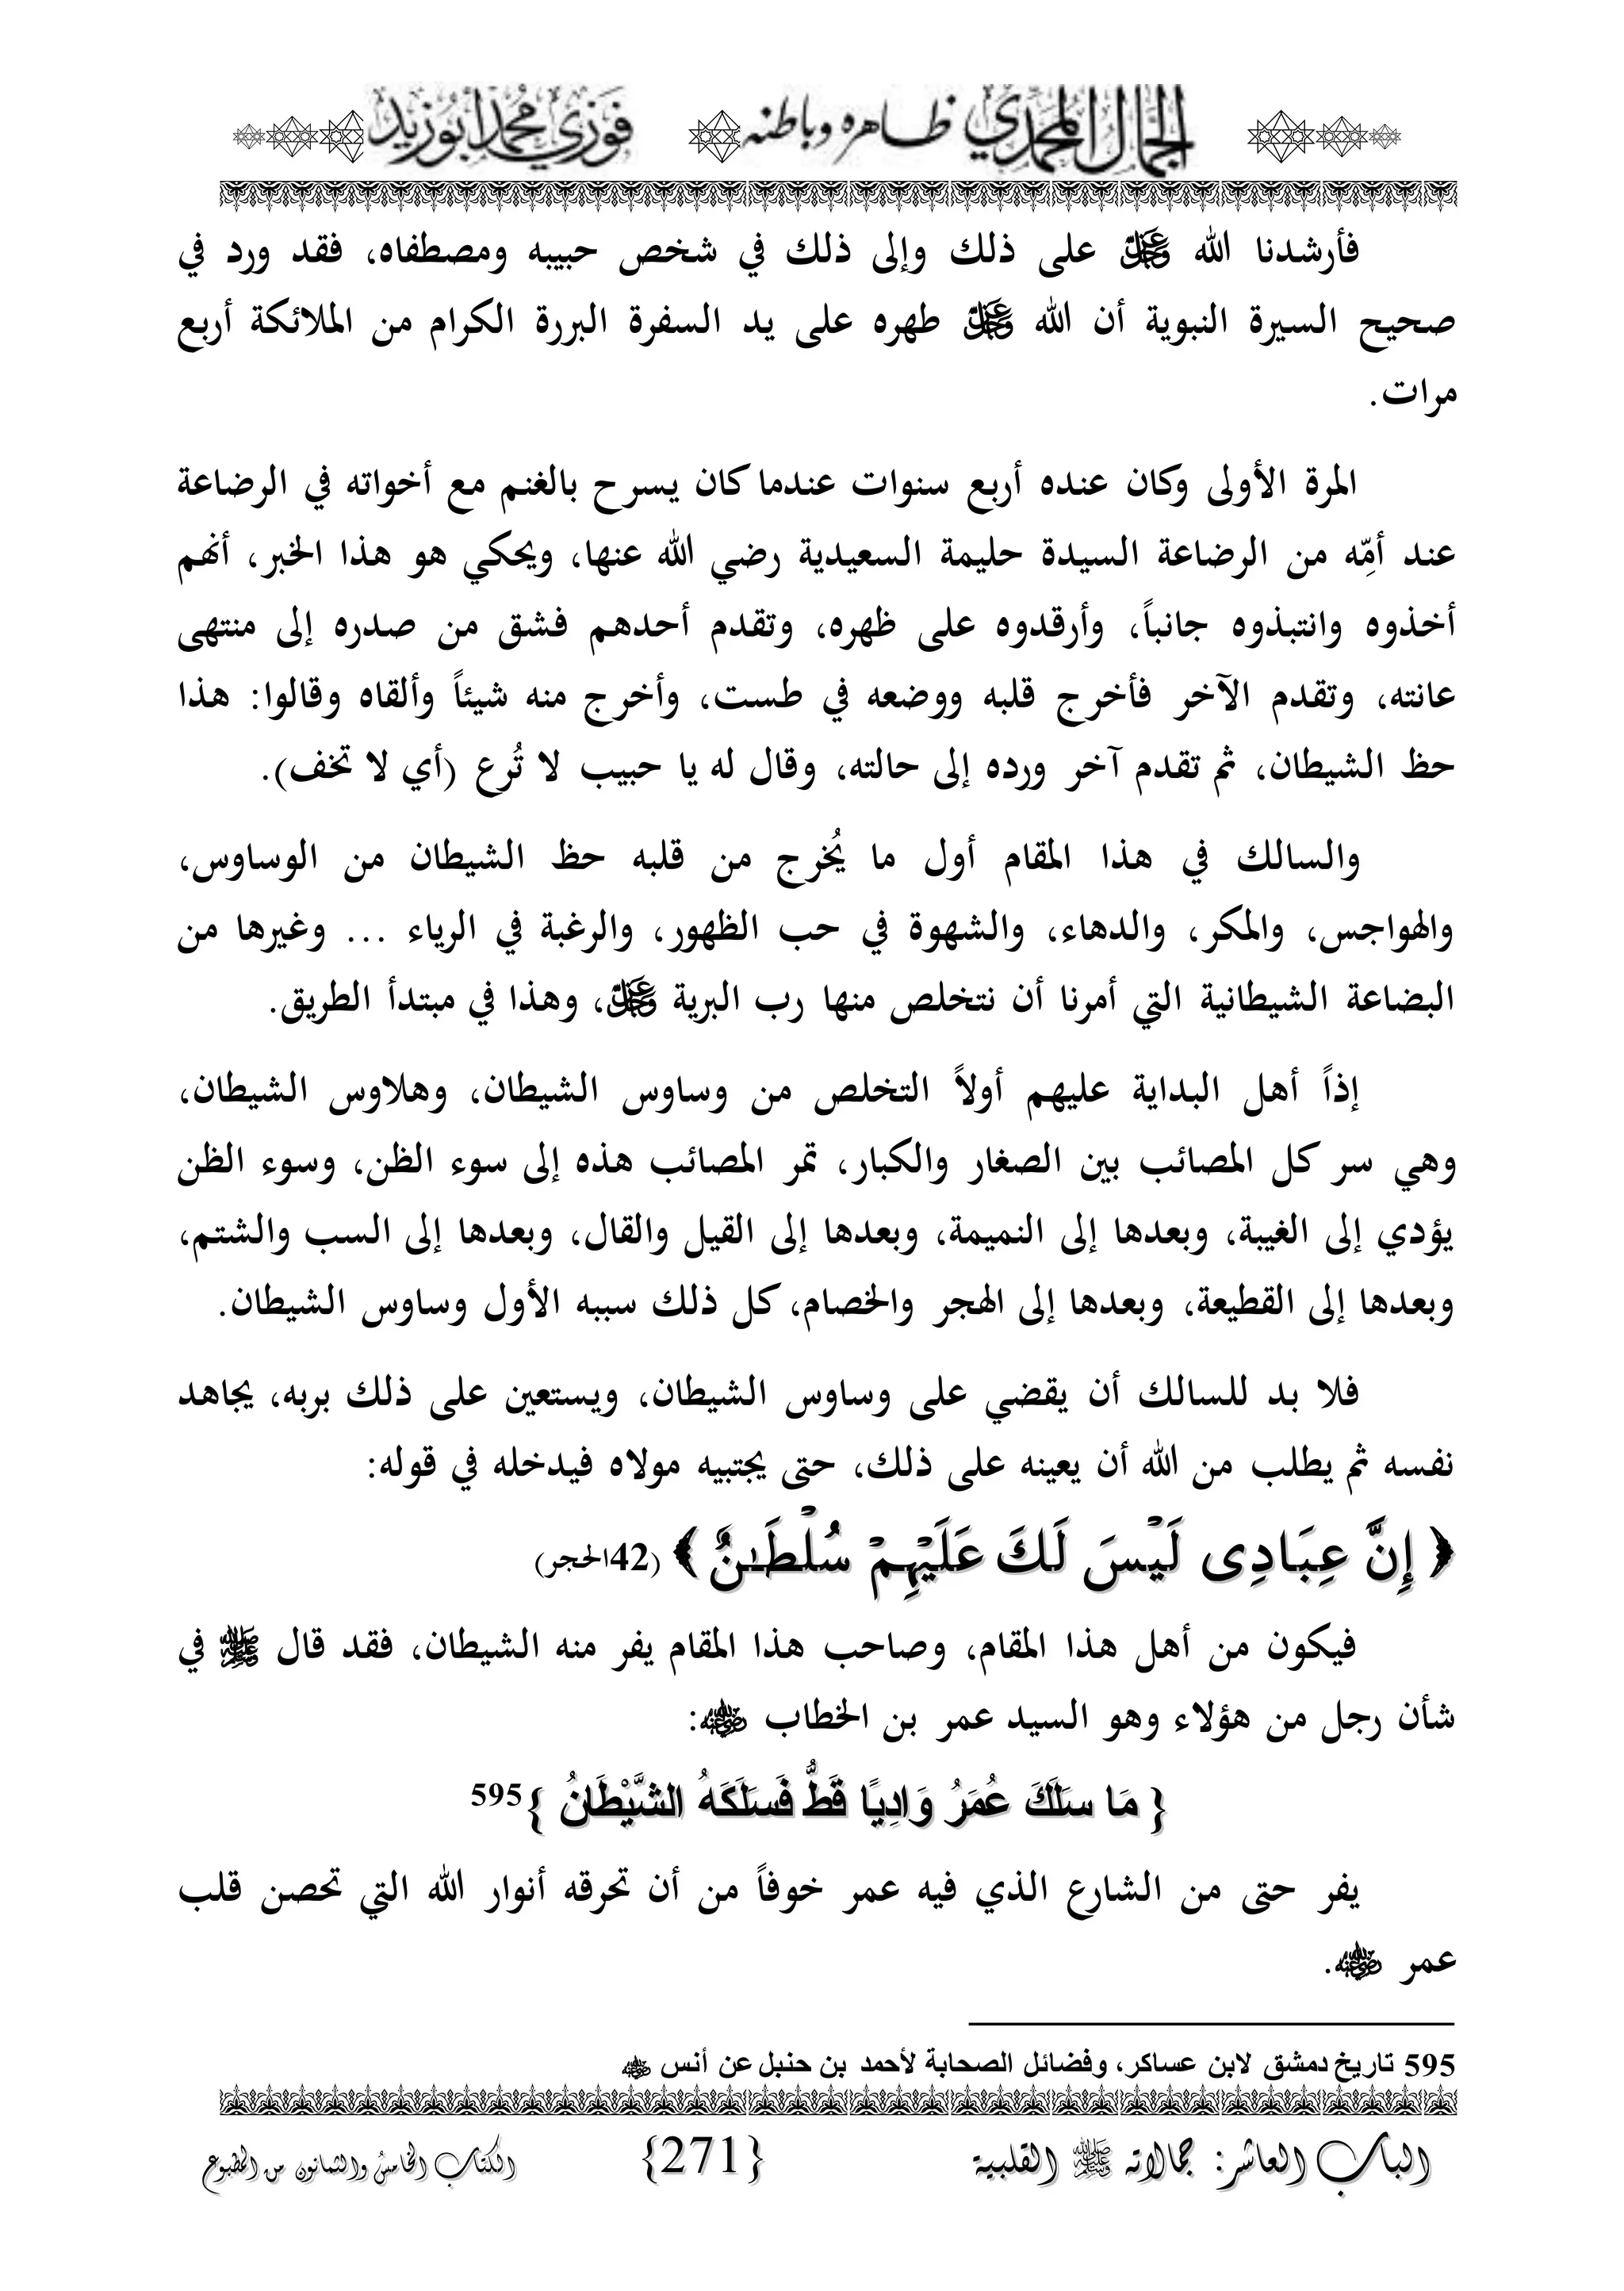 الجمال المحمدي ظاهره وباطنه فوزي محمد أبوزيد
فأرشدنا الله ﷻ على ذلك وإلى ذلك في شخص حبيبه ومصطفاه، فقد ورد في
صحيح السيرة النبوية أن الله ﷻ طهره على يد السفرة البررة الكرام من الملائكة أربع
مرات.
المرة الأولى وكان عنده أربع سنوات عندما كان يسرح بالغنم مع أخواته في الرضاعة
عند أمِّه من الرضاعة السيدة حليمة السعيدية رضي الله عنها، ويحكي هو هذا الخبر، أنهم
أخذوه وانتبذوه جانباً، وأرقدوه على ظهره، وتقدم أحدهم فشق من صدره إلى منتهى
عانته، وتقدم الآخر فأخرج قلبه ووضعه في طست، وأخرج منه شيئاً وألقاه وقالوا: هذا
حظ الشيطان، ثم تقدم آخر ورده إلى حالته، وقال له يا حبيب لا تُرع (أي لا تخف).
والسالك في هذا المقام أول ما يُخرج من قلبه حظ الشيطان من الوساوس،
والهواجس، والمكر، والدهاء، والشهوة في حب الظهور، والرغبة في الرياء ... وغيرها من
البضاعة الشيطانية التي أمرنا أن نتخلص منها رب البرية ﷻ، وهذا في مبتدأ الطريق.
إذاً أهل البداية عليهم أولاً التخلص من وساوس الشيطان، وهلاوس الشيطان،
وهي سر كل المصائب بين الصغار والكبار، تمر المصائب هذه إلى سوء الظن، وسوء الظن
يؤدي إلى الغيبة، وبعدها إلى النميمة، وبعدها إلى القيل والقال، وبعدها إلى السب والشتم،
وبعدها إلى القطيعة، وبعدها إلى الهجر والخصام، كل ذلك سببه الأول وساوس الشيطان.
فلا بد للسالك أن يقضي على وساوس الشيطان، ويستعين على ذلك بربه، يجاهد
نفسه ثم يطلب من الله أن يعينه على ذلك، حتى يجتبيه مولاه فيدخله في قوله:
﴿ إِنَّ عِبَادِى لَيْسَ لَكَ عَلَيْهِمْ سُلْطَٰنٌ ﴾ (42الحجر)
فيكون من أهل هذا المقام، وصاحب هذا المقام يفر منه الشيطان، فقد قال ﷺ في
شأن رجل من هؤلاء وهو السيد عمر بن الخطاب رضي الله عنه:
{ مَا سَلَكَ عُمَرُ وَادِيًا قَطُّ فَسَلَكَهُ الشَّيْطَانُ }595
يفر حتى من الشارع الذي فيه عمر خوفاً من أن تحرقه أنوار الله التي تحصن قلب
عمر رضي الله عنه.
595 تاريخ دمشق لابن عساكر، وفضائل الصحابة لأحمد بن حنبل عن أنس رضي الله عنه
الباب العاشر: جمالاته ﷺ القلبية {271} الكتاب الخامس والثمانون من المطبوع